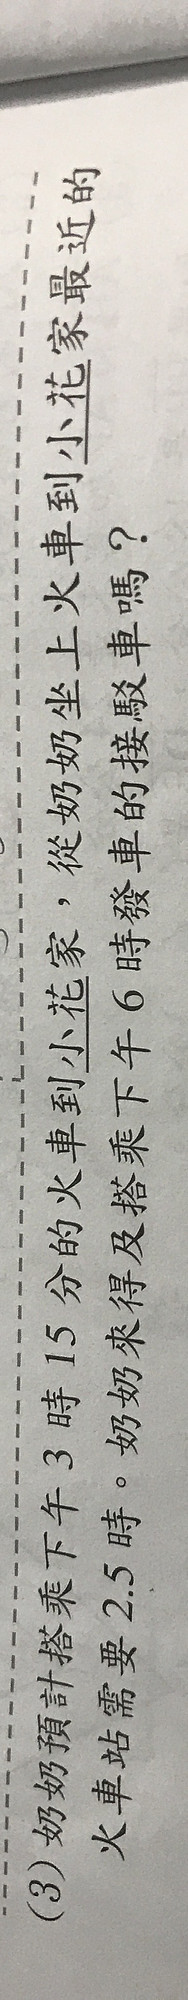 (3) 奶奶預計搭乘下午 3 時 15 分的火車到小花家，從奶奶坐上火車到小花家最近的
火車站需要 2.5 時。奶奶來得及搭乘下午 6 時發車的接駁車嗎？